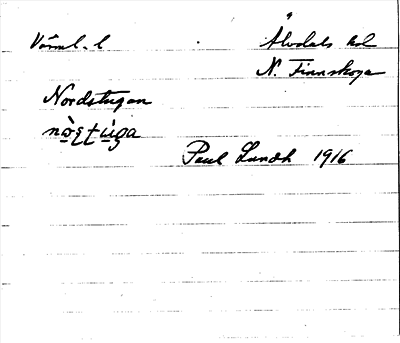 Värml. l Älvdals hd
N. Finnskoga
Nordstugan
nòʂʈùga
Paul Lundh 1916